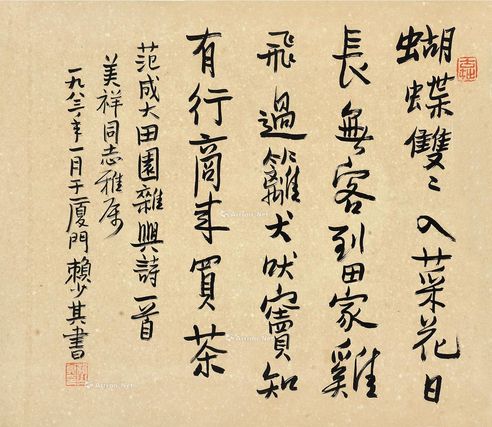 蝴蝶雙〻入菜花日
長無客到田家雞
飛過籬犬吠竇知
有行商來買茶
范成大田園雜興詩一首
美祥同志雅屬
一九八三年一月于厦門賴少其書